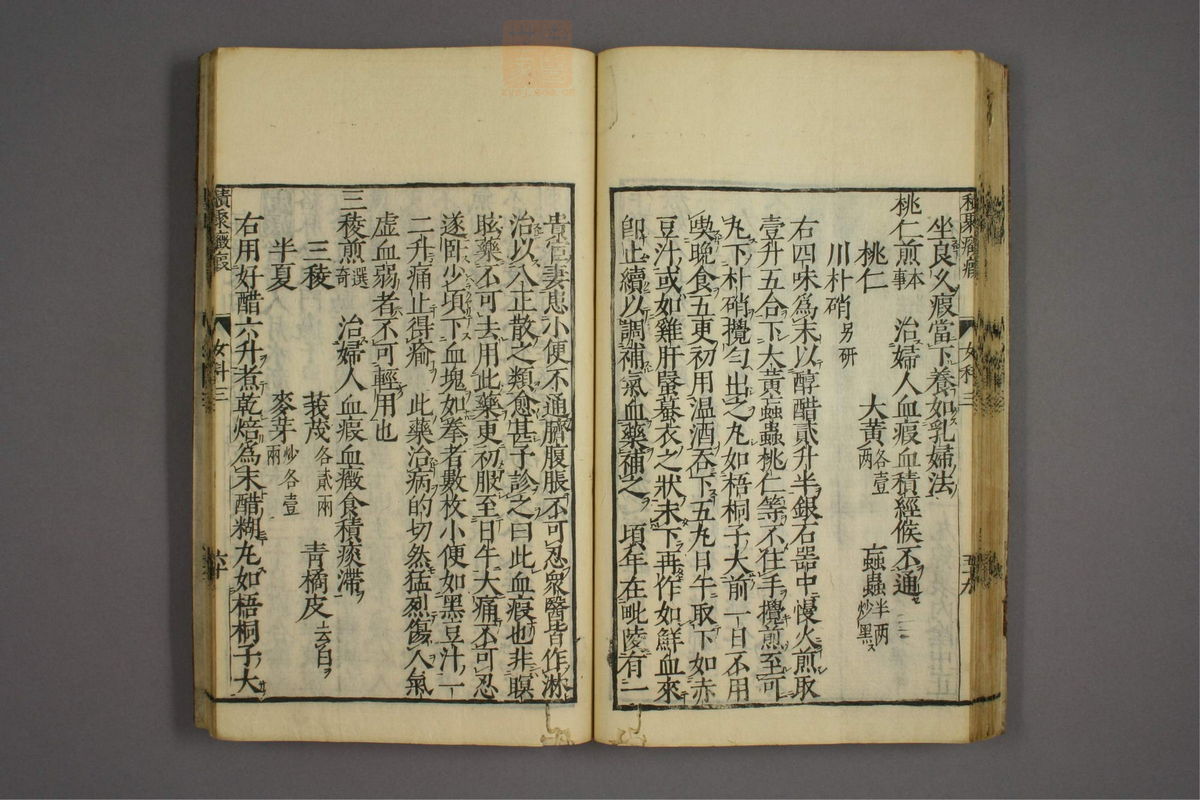 積聚癥瘕 女科三 五十九
坐良久瘕當下養如乳婦法
桃仁煎本事 治婦人血瘕血積經候不通
桃仁 大黃各壹兩 䖟蟲半兩炒黑
川朴硝另研
右四味為末以醇醋貳升半銀石器中慢火煎取
壹升五合下大黃䖟蟲桃仁等不住手攪煎至可
丸下朴硝攪勻出之丸如梧桐子大前一日不用
喫晚食五更初用温酒吞下五丸日午取下如赤
豆汁或如雞肝蝦蟇衣之狀未下再作如鮮血來
即止續以調補氣血藥補之 頃年在毗陵有一
貴官妻患小便不通臍腹脹不可忍衆醫皆作淋
治以八正散之類愈甚予診之曰此血瘕也非瞑
眩藥不可去用此藥更初服至日午大痛不可忍
遂卧少頃下血塊如拳者數枚小便如黑豆汁一
二升痛止得瘉 此藥治病的切然猛烈傷人氣
虛血弱者不可輕用也
三稜煎選奇 治婦人血瘕血癥食積痰滯
三稜 莪茂各貳兩 青橘皮去白
半夏 麥芽炒各壹兩
右用好醋六升煮乾焙為末醋糊丸如梧桐子大
積聚癥瘕 女科三 六十